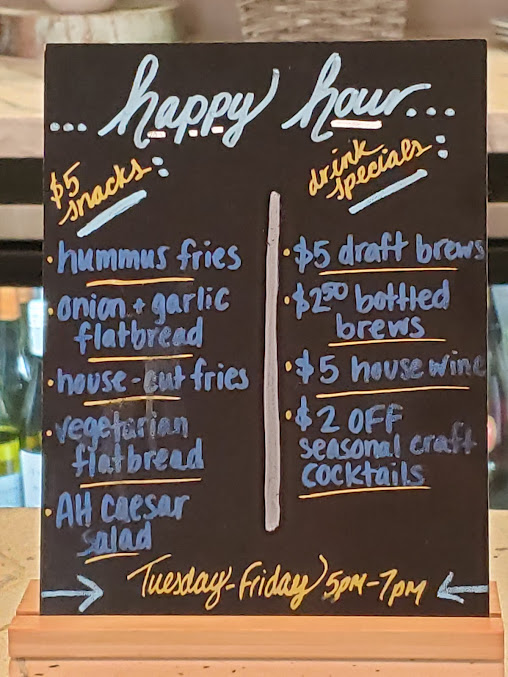 ... happy hour...
$5
snacks:
• hummus fries
• onion + garlic
flatbread
• house-cut fries
• vegetarian
flatbread
• AH caesar
salad
drink
specials:
• $5 draft brews
• $2.50 bottled
brews
• $5 house wine
• $2 OFF
seasonal craft
cocktails
→ Tuesday-Friday 5PM-7PM ←